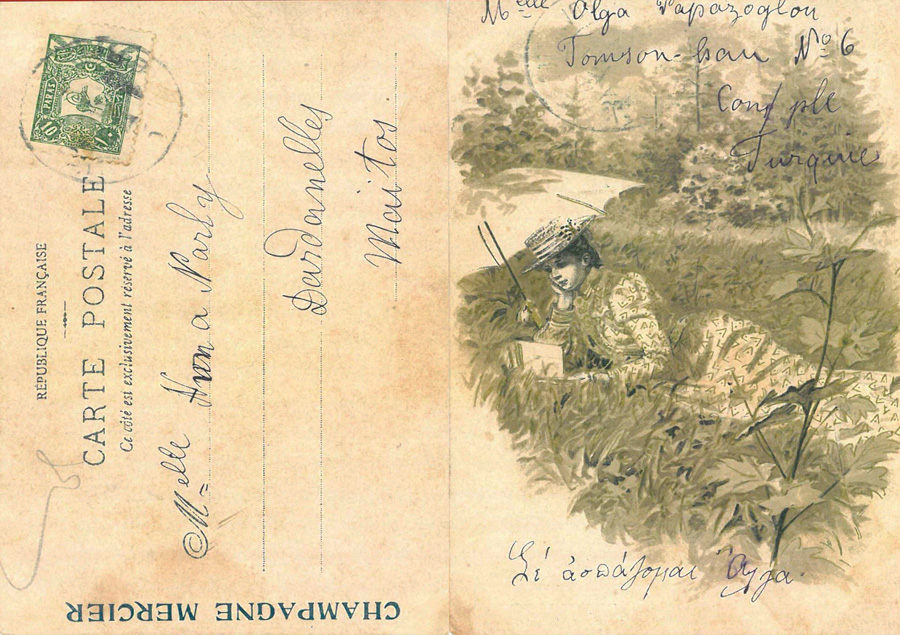 RÉPUBLIQUE FRANÇAISE
CARTE POSTALE
Ce côté est exclusivement réservé à l'adresse
Melle Anna Narly
Dardanelles
Maitos
CHAMPAGNE MERCIER
10 PARAS
Melle Olga Papazoglou
Tomson-han No 6
Con/ple
Turquie
Σέ ἀσπάζομαι Ὄλγα.